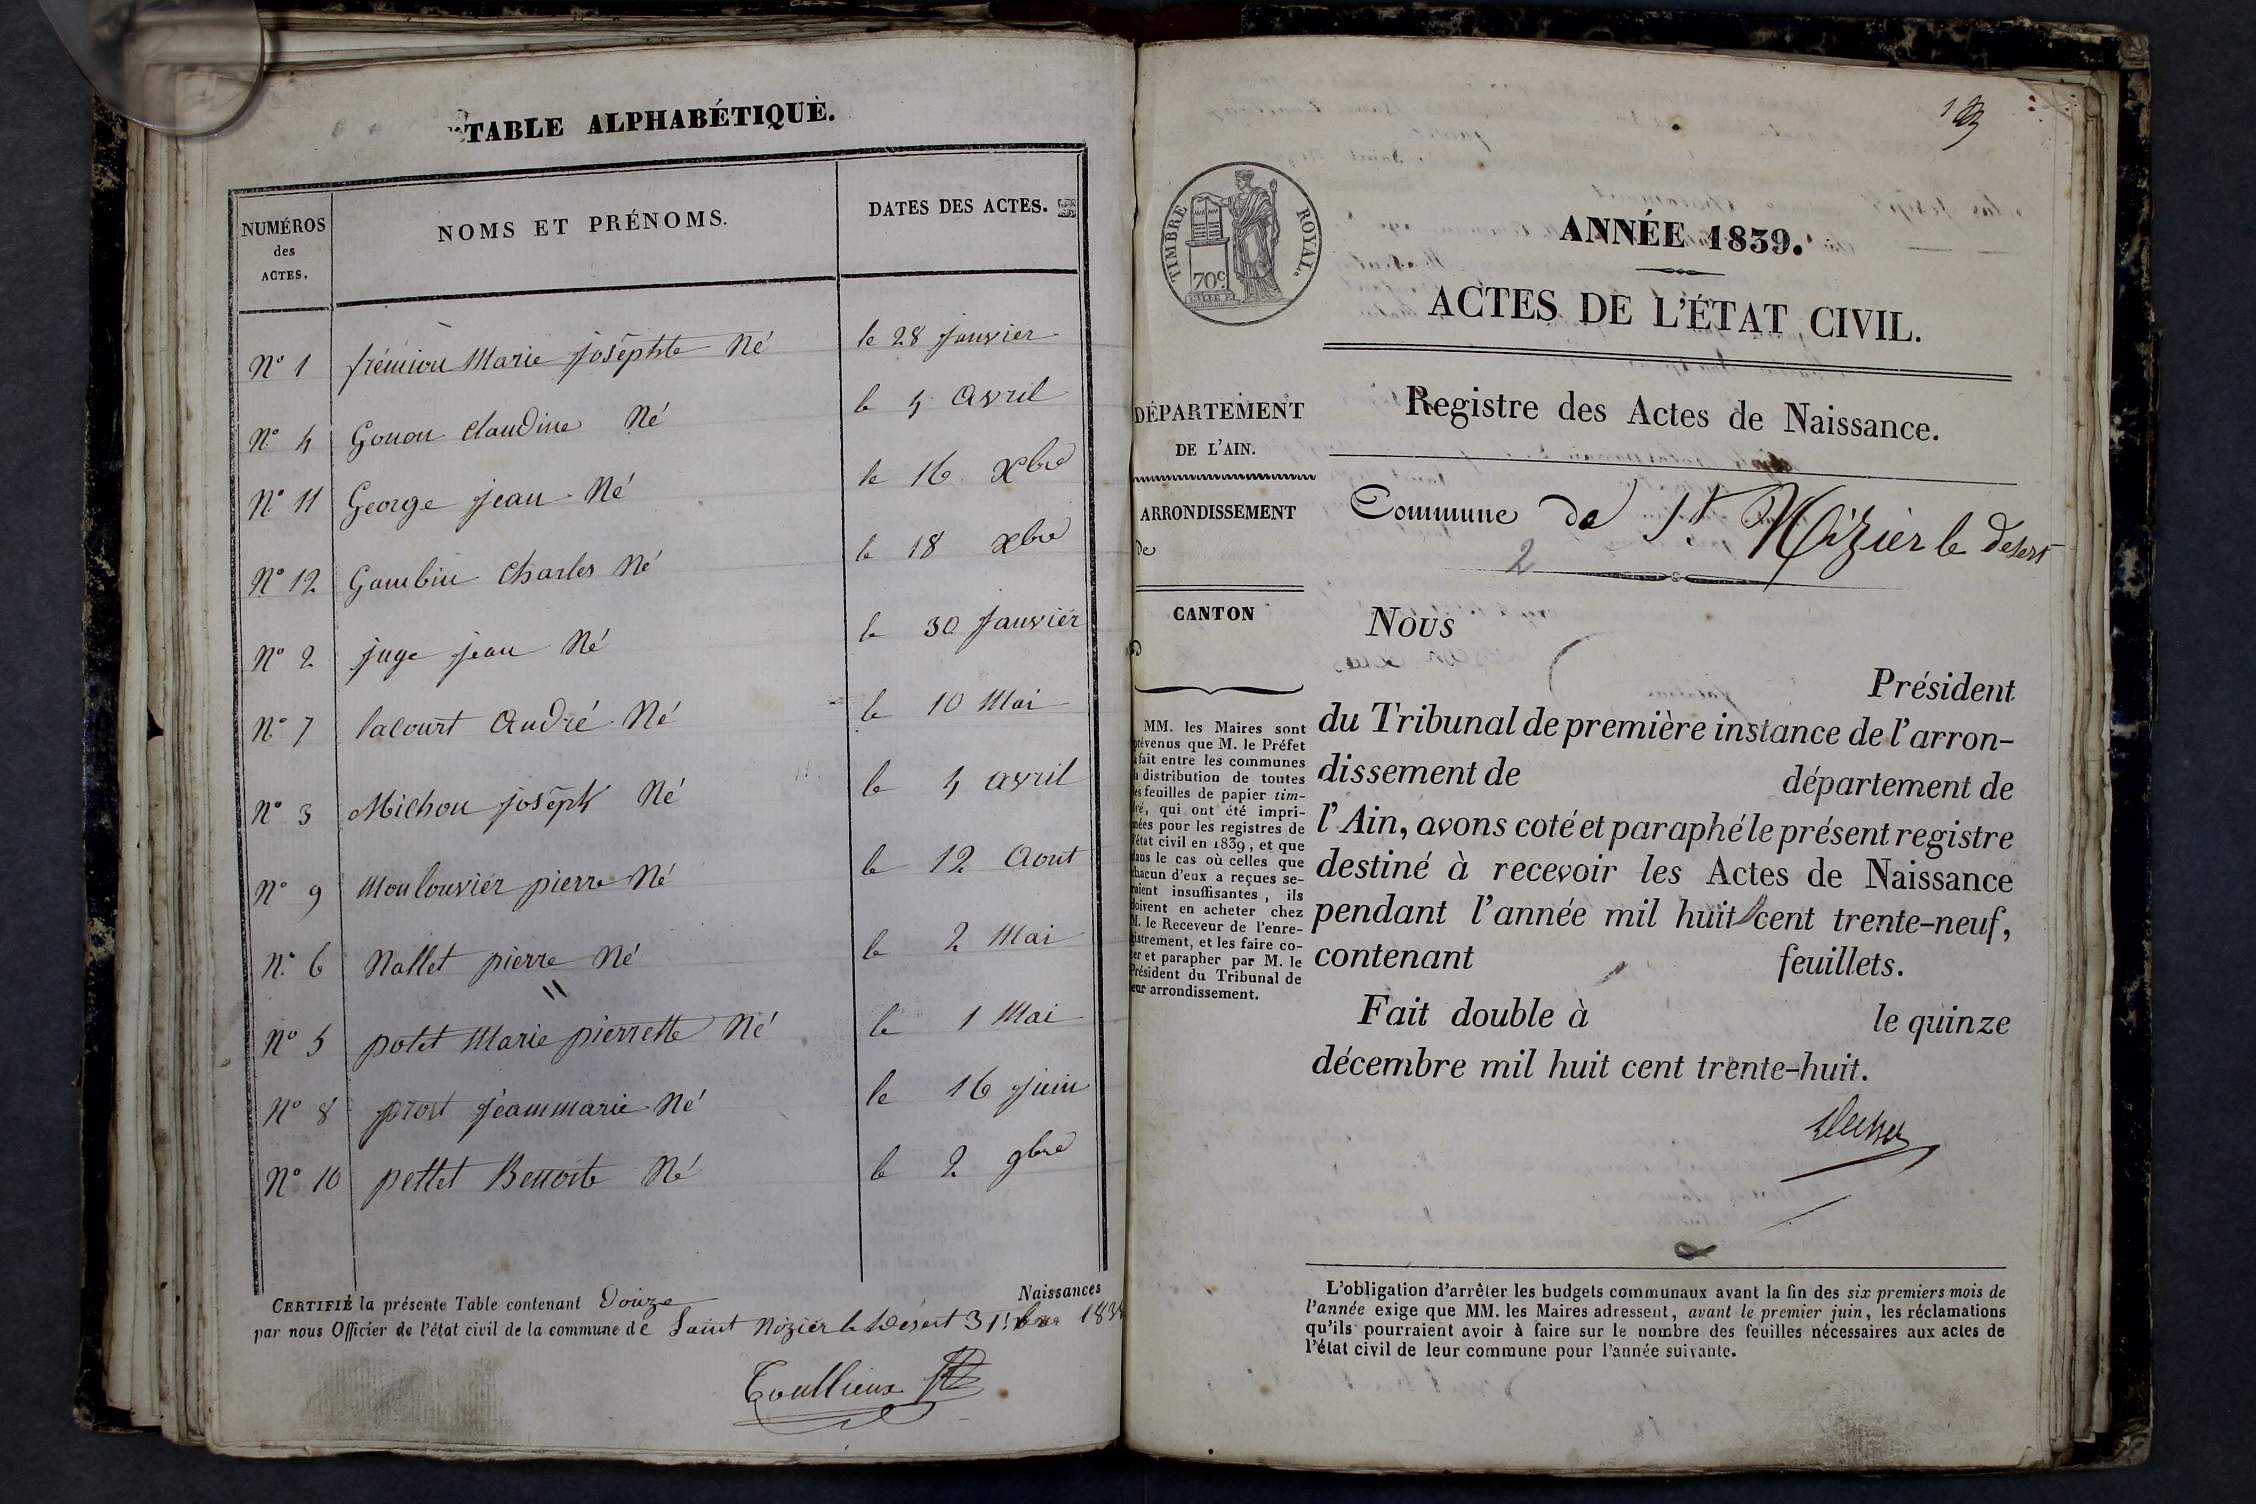 TABLE ALPHABÉTIQUE.
NUMÉROS des ACTES.
NOMS ET PRÉNOMS.
DATES DES ACTES.
N° 1 frémion Marie josephte Né le 28 janvier
N° 4 Gonon Claudine Né le 4 avril
N° 11 George jean Né le 16 Xbre
N° 12 Gambin Charles Né le 18 xbre
N° 2 juge jean Né le 30 Janvier
N° 7 lacourt André Né le 10 Mai
N° 3 Michon joseph Né le 4 avril
N° 9 Monlouvier pierre Né le 12 Aout
N° 6 Nallet pierre Né le 2 Mai
N° 5 potet Marie pierrette Né le 1 Mai
N° 8 prost jeanmarie Né le 16 juin
N° 10 pettet Benoite Né le 2 9bre
CERTIFIÉ la présente Table contenant Douze Naissances
par nous Officier de l'état civil de la commune de Saint Nizier le Désert 31
Toullieux
ANNÉE 1839.
TIMBRE ROYAL.
70c
ACTES DE L'ÉTAT CIVIL.
DÉPARTEMENT
DE L'AIN.
ARRONDISSEMENT
de
CANTON
MM. les Maires sont
prévenus que M. le Préfet
a fait entre les communes
la distribution de toutes
les feuilles de papier tim-
bré, qui ont été impri-
mées pour les registres de
l'état civil en 1839, et que
dans le cas où celles que
chacun d'eux a reçues se-
raient insuffisantes, ils
doivent en acheter chez
M. le Receveur de l'enre-
gistrement, et les faire co-
ter et parapher par M. le
Président du Tribunal de
leur arrondissement.
Registre des Actes de Naissance.
Commune de St Nizier le desert
2
Nous
Président
du Tribunal de première instance de l'arron-
dissement de département de
l'Ain, avons coté et paraphé le présent registre
destiné à recevoir les Actes de Naissance
pendant l'année mil huit cent trente-neuf,
contenant feuillets.
Fait double à le quinze
décembre mil huit cent trente-huit.
L'obligation d'arrêter les budgets communaux avant la fin des six premiers mois de
l'année exige que MM. les Maires adressent, avant le premier juin, les réclamations
qu'ils pourraient avoir à faire sur le nombre des feuilles nécessaires aux actes de
l'état civil de leur commune pour l'année suivante.